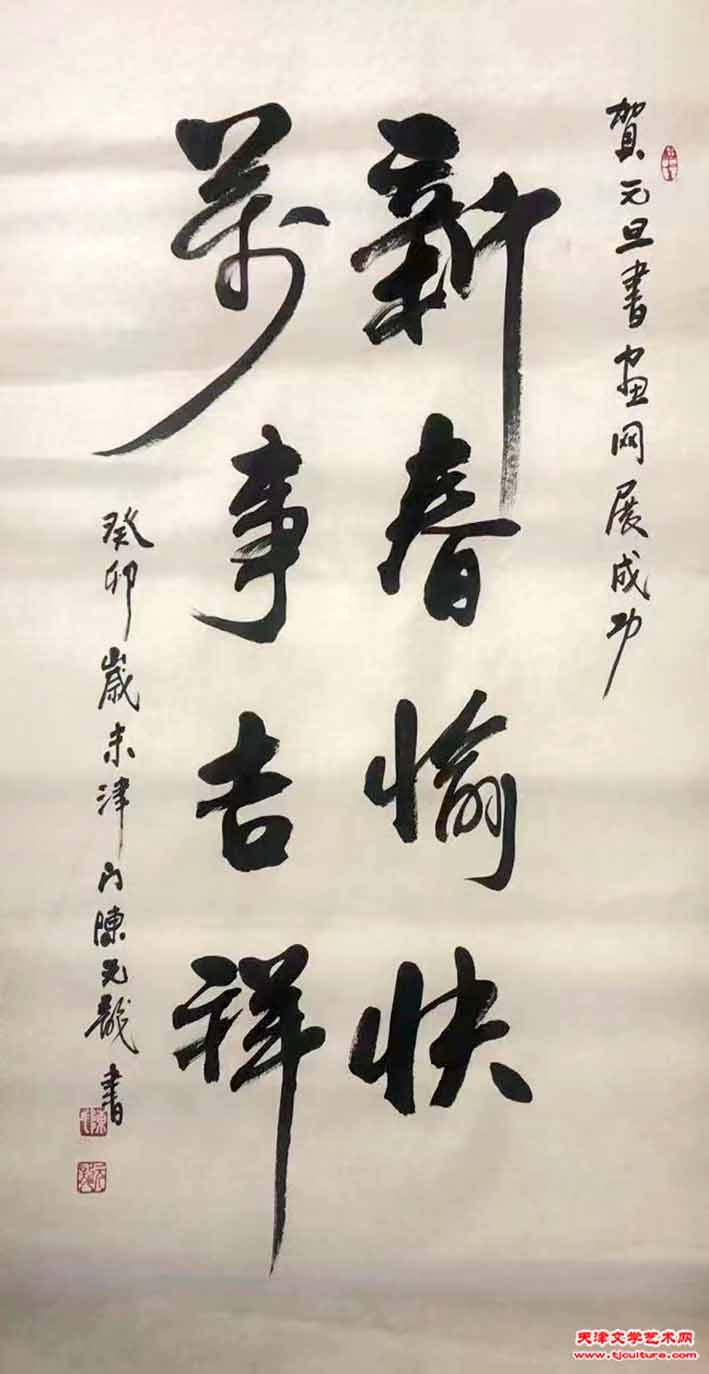 賀元旦書画网展成功
新春愉快
萬事吉祥
癸卯歲末津门陳元龍書
天津文学艺术网
www.tjculture.com